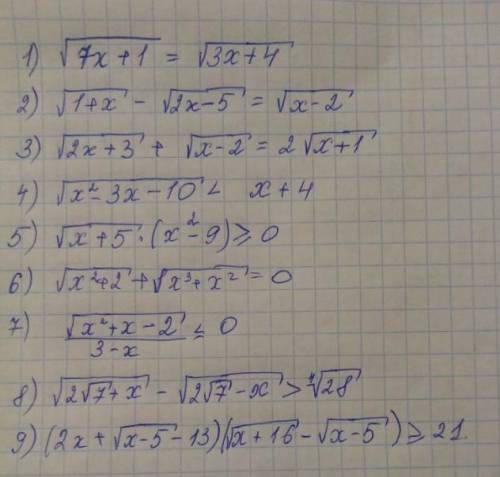 1) √(7x+1) = √(3x+4)
2) √(1+x) - √(2x-5) = √(x-2)
3) √(2x+3) + √(x-2) = 2√(x+1)
4) √(x²-3x-10) < x+4
5) √(x+5)·(x²-9) ≥ 0
6) √(x²+2) + √(x³+x²) = 0
7) √(x²+x-2)/(3-x) ≤ 0
8) √(2√7+x) - √(2√7-x) > ⁴√28
9) (2x+√(x-5)-13)(√(x+16)-√(x-5)) ≥ 21